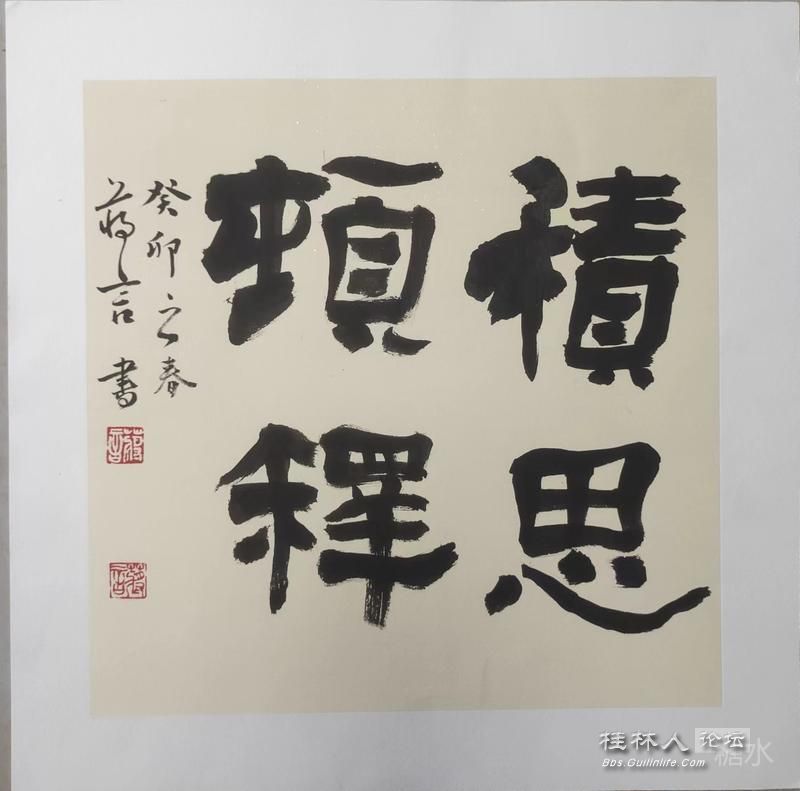 積思
頓釋
癸卯之春
蔣言書
桂林人论坛
Bbs.Guilinlife.com
糖水